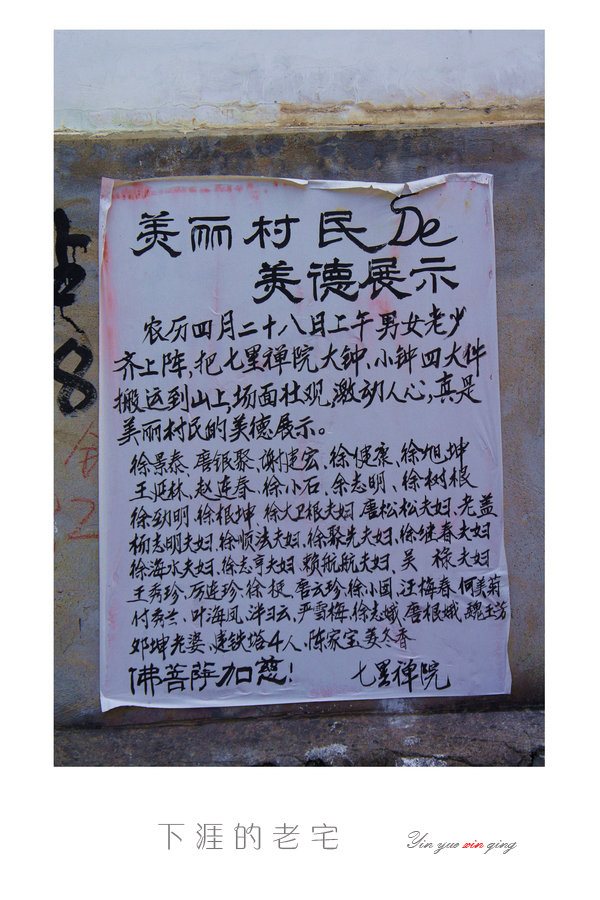 美丽村民De
美德展示
农历四月二十八日上午男女老少
齐上阵,把七里禅院大钟、小钟四大件
搬运到山上,场面壮观,激动人心,真是
美丽村民的美德展示。
徐景泰、唐银聚、谢建宏、徐健康、徐旭坤
王延林、赵连春、徐小石、余志明、徐树根
徐劲明、徐根坤、徐大卫根夫妇、唐松松夫妇、老盖
杨志明夫妇、徐顺法夫妇、徐聚先夫妇、徐继春夫妇
徐海水夫妇、徐志亨夫妇、赖航航夫妇、吴 禄夫妇
王秀珍、厉连珍、徐梫、唐云珍、徐小国、汪梅春、何美菊
付秀兰、叶海凤、泮彐云、严雪梅、徐志娥、唐根娥、魏玉芳
邓坤老婆、建铁塔4人、陈家宝、姜冬香
佛菩萨加慈! 七里禅院
8
下涯的老宅
Yin yue xin qing